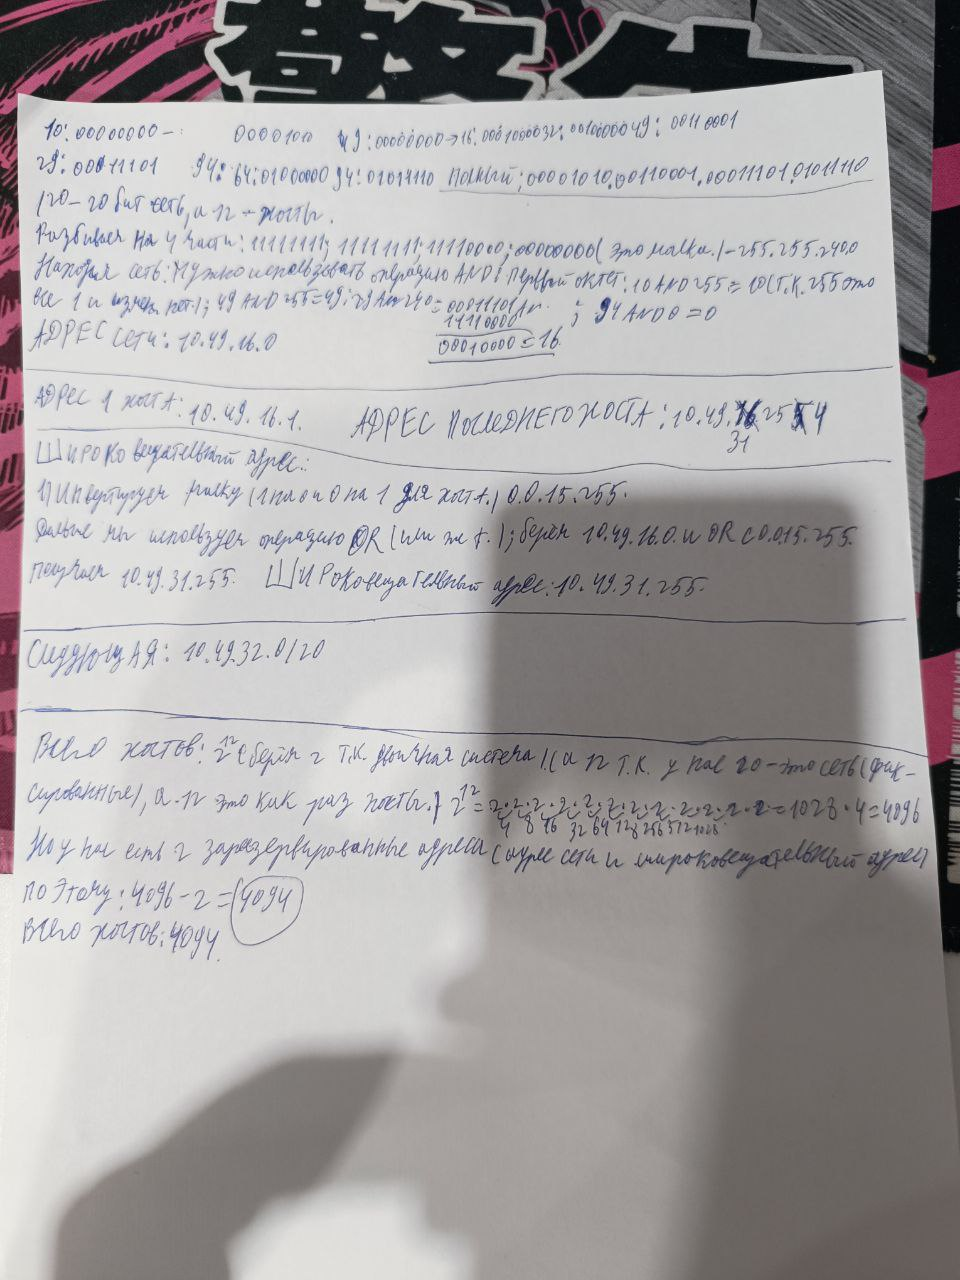 10:00000000-: 0000100 49:00000000→16:0001000032:0010000049:00110001
29:00011101 94:64:0100000094:01011110 полный:00001010.00110001.00011101.01011110
/20-20 бит сеть, а 12 - хосты.
Разбиваем на 4 части: 11111111; 11111111; 11110000; 00000000( это маска.)-255.255.240.0
Находим сеть: Нужно использовать операцию AND: Первый октет: 10 AND 255 = 10(Т.К. 255 это
все 1 и нет); 49 AND 255=49; 29 AND 240=00011101
11110000 ; 94 AND 0 = 0
00010000 = 16
АДРЕС сети: 10.49.16.0
АДРЕС 1 хостА: 10.49.16.1. АДРЕС ПОСЛЕДНЕГО ХОСТА: 10.49.31.254
Широковещательный адрес:
1) Инвертируем маску (1 на 0 и 0 на 1 для хоста.) 0.0.15.255.
Дальше мы используем операцию OR (или же +.); берём 10.49.16.0. и OR с 0.0.15.255.
Получаем 10.49.31.255. Широковещательный адрес: 10.49.31.255.
СледующАЯ: 10.49.32.0/20
Всего хостов: 2^12 (берём 2 Т.К. двоичная система)(а 12 Т.К. у нас 20-это сеть (фик-
сированные), а 12 это как раз хосты.) 2^12=2·2·2·2·2·2·2·2·2·2·2·2=1028·4=4096
4 8 16 32 64 128 256 512 1028
Но у нас есть 2 зарезервированные адреса (адрес сети и широковещательный адрес)
поэтому: 4096-2=4094
Всего хостов: 4094.